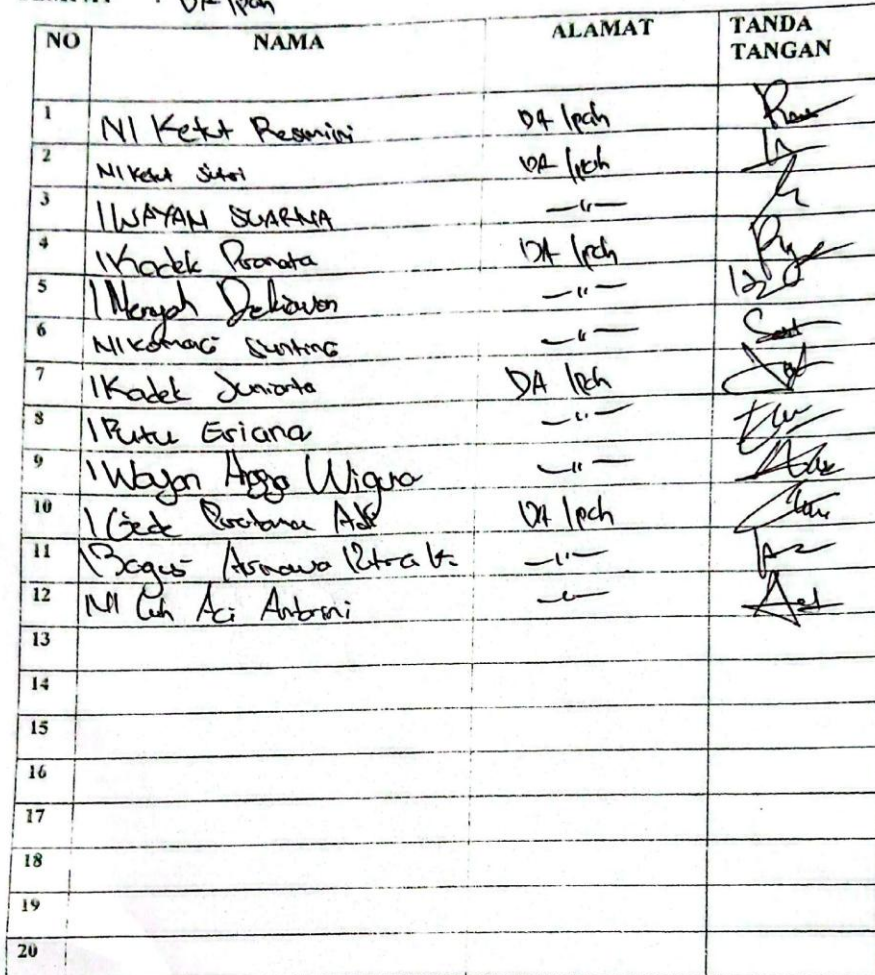 : DA Ipah
NO NAMA ALAMAT TANDA TANGAN
1 NI Ketut Resmini DA Ipah
2 NI Ketut Sutri DA Ipah
3 I WAYAN SUARNA —"—
4 I Kadek Pranata DA Ipah
5 I Nengah —"—
6 NI KOMANG SUNTING —"—
7 I Kadek Juniarta DA Ipah
8 I Putu Eriana —"—
9 I Wayan Angga Wiguna —"—
10 I Gede Pratama Adi DA Ipah
11 I Bagus Asnawa Putra K. —"—
12 NI Luh Aci Antarini —"—
13
14
15
16
17
18
19
20